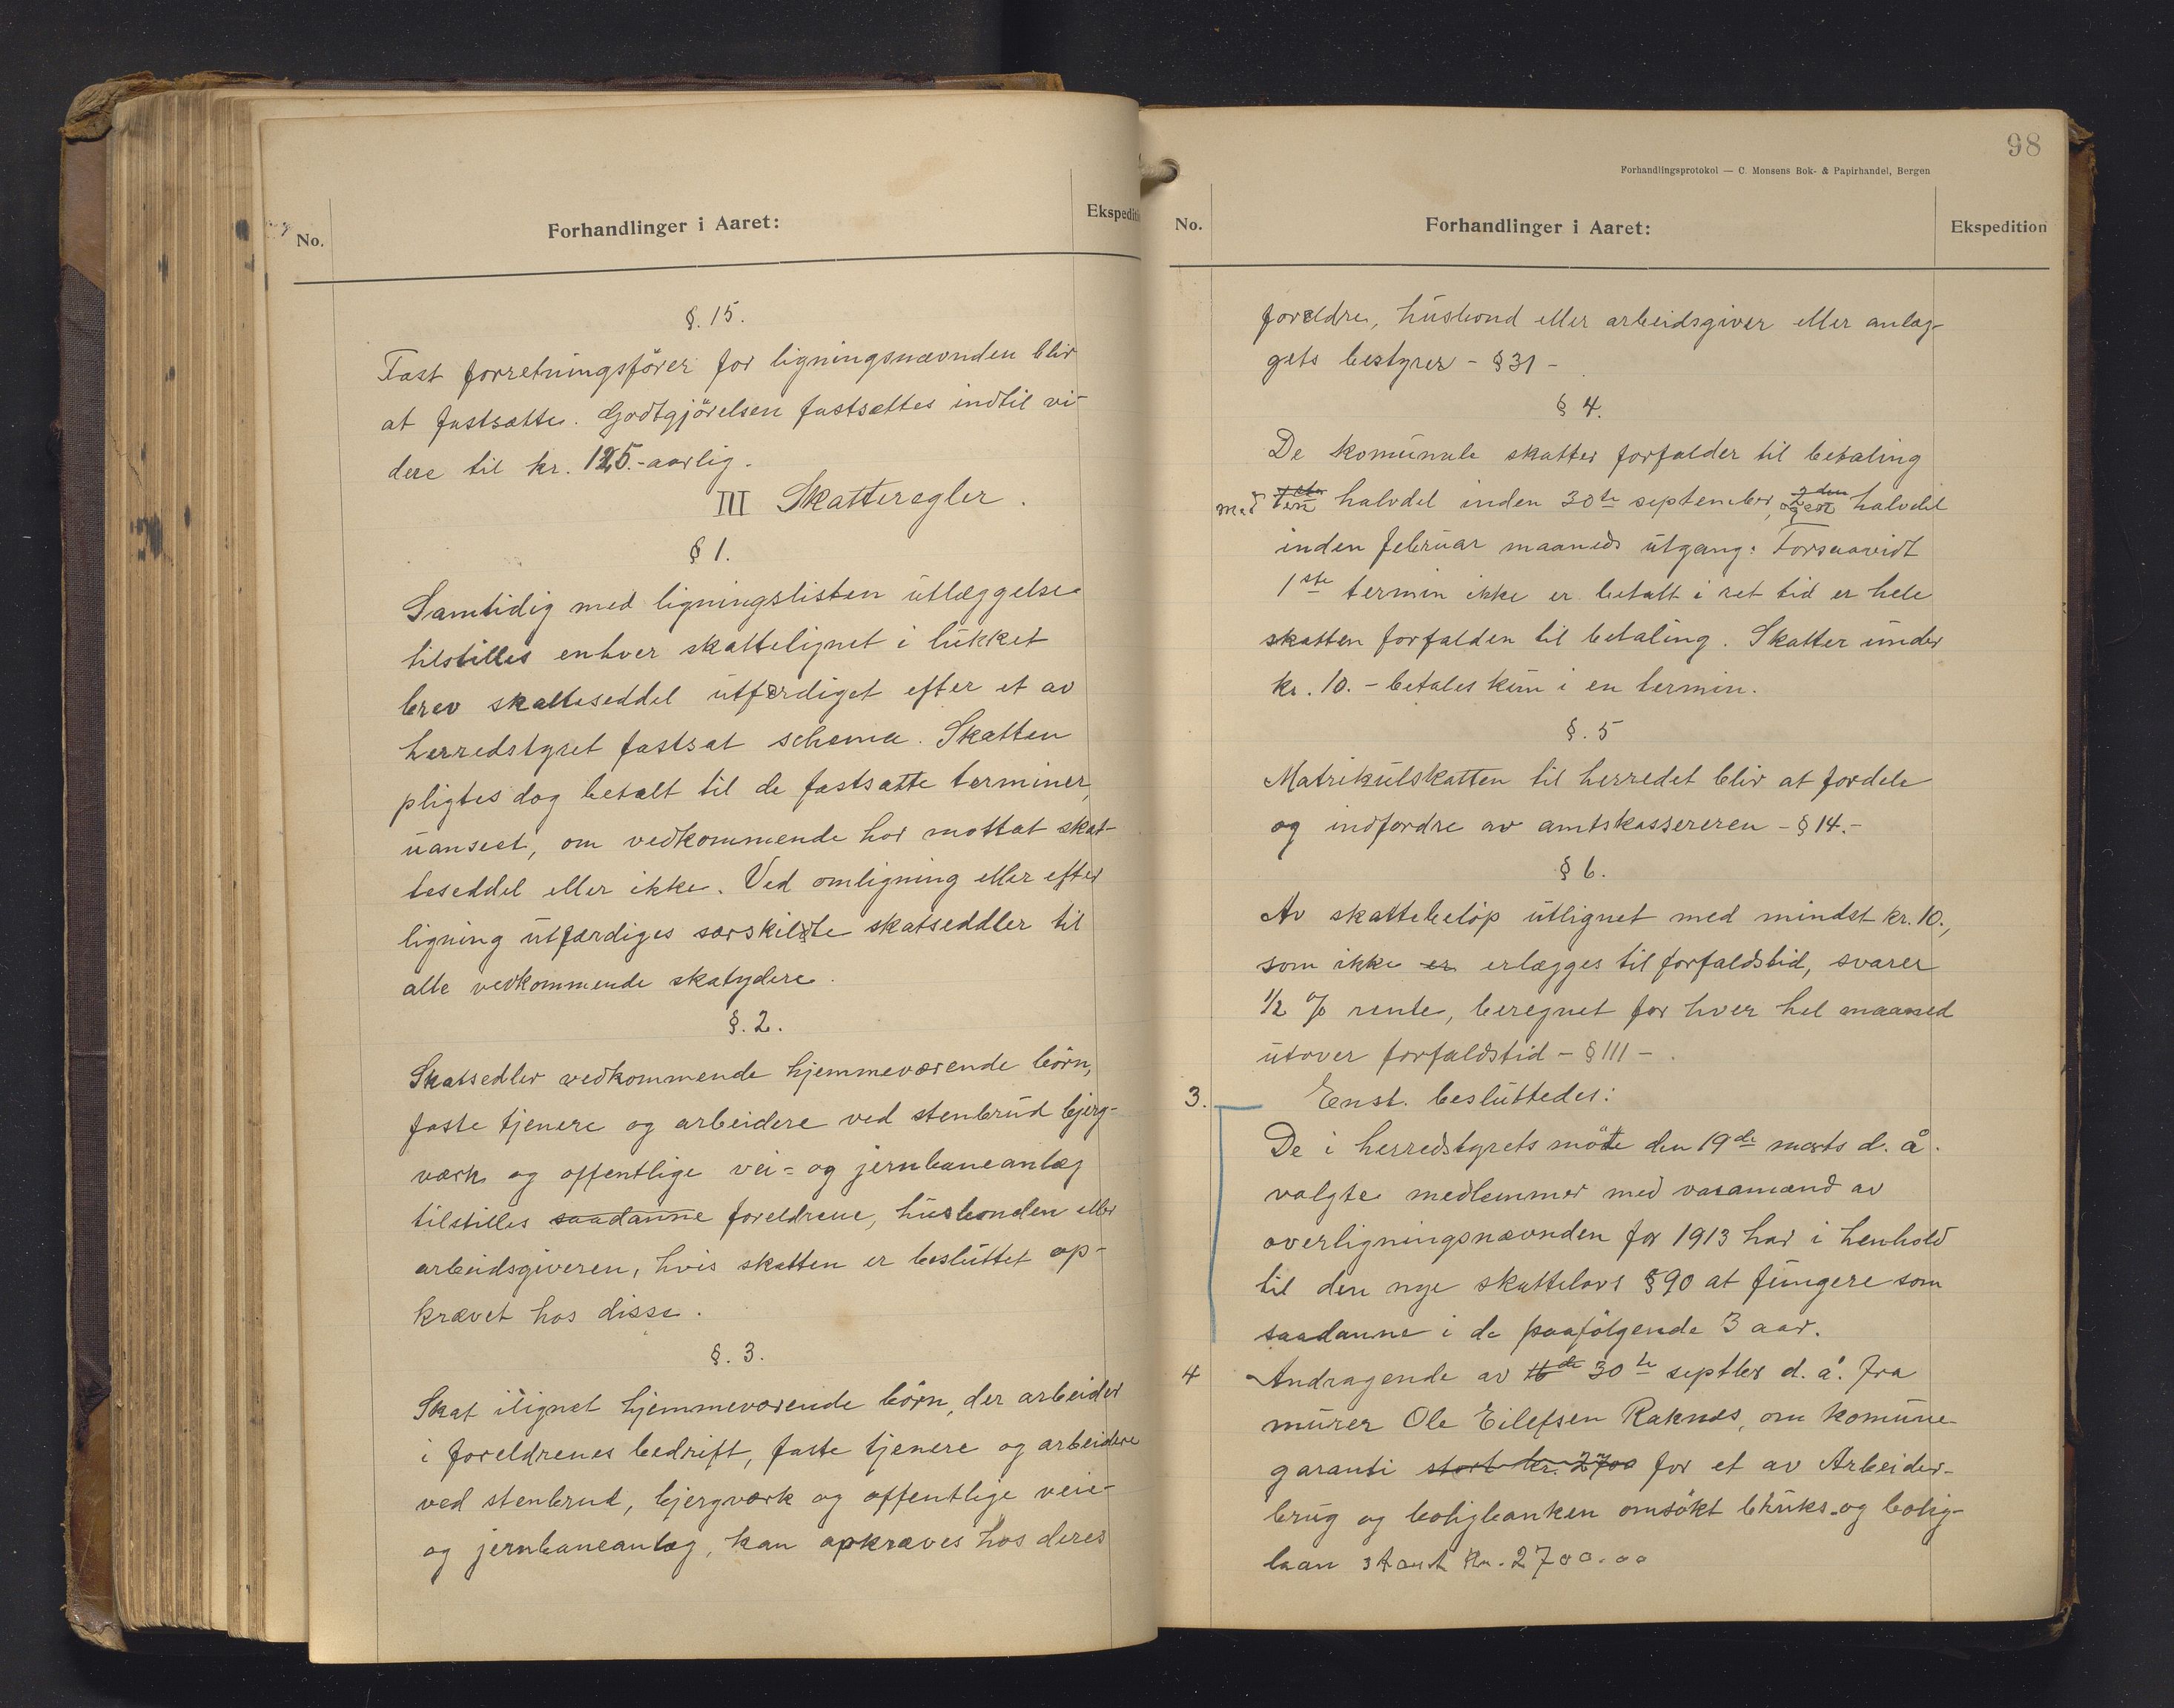 No.
Forhandlinger i Aaret:
Ekspediti
§. 15.
Fast forretningsförer for ligningsnævnden blir
at fastsætte. Godtgjörelsen fastsættes indtil vi-
dere til kr. 125.- aarlig.
III Skatteregler.
§ 1.
Samtidig med ligningslisten utlæggelse
tilstilles enhver skattelignet i lukket
brev skatteseddel utfærdiget efter et av
herredstyret fastsat schema. Skatten
pligtes dog betalt til de fastsatte terminer,
uanseet, om vedkommende har mottat skat-
teseddel eller ikke. Ved omligning eller efter
ligning utfærdiges særskilte skatseddler til
alle vedkommende skatydere.
§. 2.
Skatsedler vedkommende hjemmeværende börn,
faste tjenere og arbeidere ved stenbrud bjerg-
værk og offentlige vei- og jernbaneanlæg
tilstilles saadanne foreldrene, husbonden eller
arbeidsgiveren, hvis skatten er besluttet op-
krævet hos disse.
§. 3.
Skat ilignet hjemmeværende börn, der arbeider
i foreldrenes bedrift, faste tjenere og arbeidere
ved stenbrud, bjergværk og offentlige veie-
og jernbaneanlæg, kan opkræves hos deres
98
Forhandlingsprotokol — C. Monsens Bok- & Papirhandel, Bergen
No.
Forhandlinger i Aaret:
Ekspedition
foreldre, husbond eller arbeidsgiver eller anlæg-
gets bestyrer - § 31 -
§ 4.
De komunale skatter forfalder til betaling
med halvdel inden 30te september, 2den halvdel
inden februar maaneds utgang. Forsaavidt
1ste termin ikke er betalt i ret tid er hele
skatten forfalden til betaling. Skatter under
kr. 10.- betales kun i en termin.
§. 5
Matrikulskatten til herredet blir at fordele
og indfordre av amtskassereren - § 14.-
§ 6.
Av skattebelöp utlignet med mindst kr. 10.,
som ikke er erlægges til forfaldstid, svarer
1/2 % rente, beregnet for hver hel maaned
utover forfaldstid - § 111 - .
3. Enst. besluttedes:
De i herredstyrets möte den 19de marts d. å.
valgte medlemmer med varamænd av
overligningsnævnden for 1913 har i henhold
til den nye skattelovs § 90 at fungere som
saadanne i de paafölgende 3 aar.
4 Andragende av 16de 30te septbr d. å. fra
murer Ole Eilefsen Raknes, om komune-
garanti stort kr. 2700 for et av Arbeider-
brug og boligbanken omsökt bruks- og bolig-
laan stort Kr. 2700.00